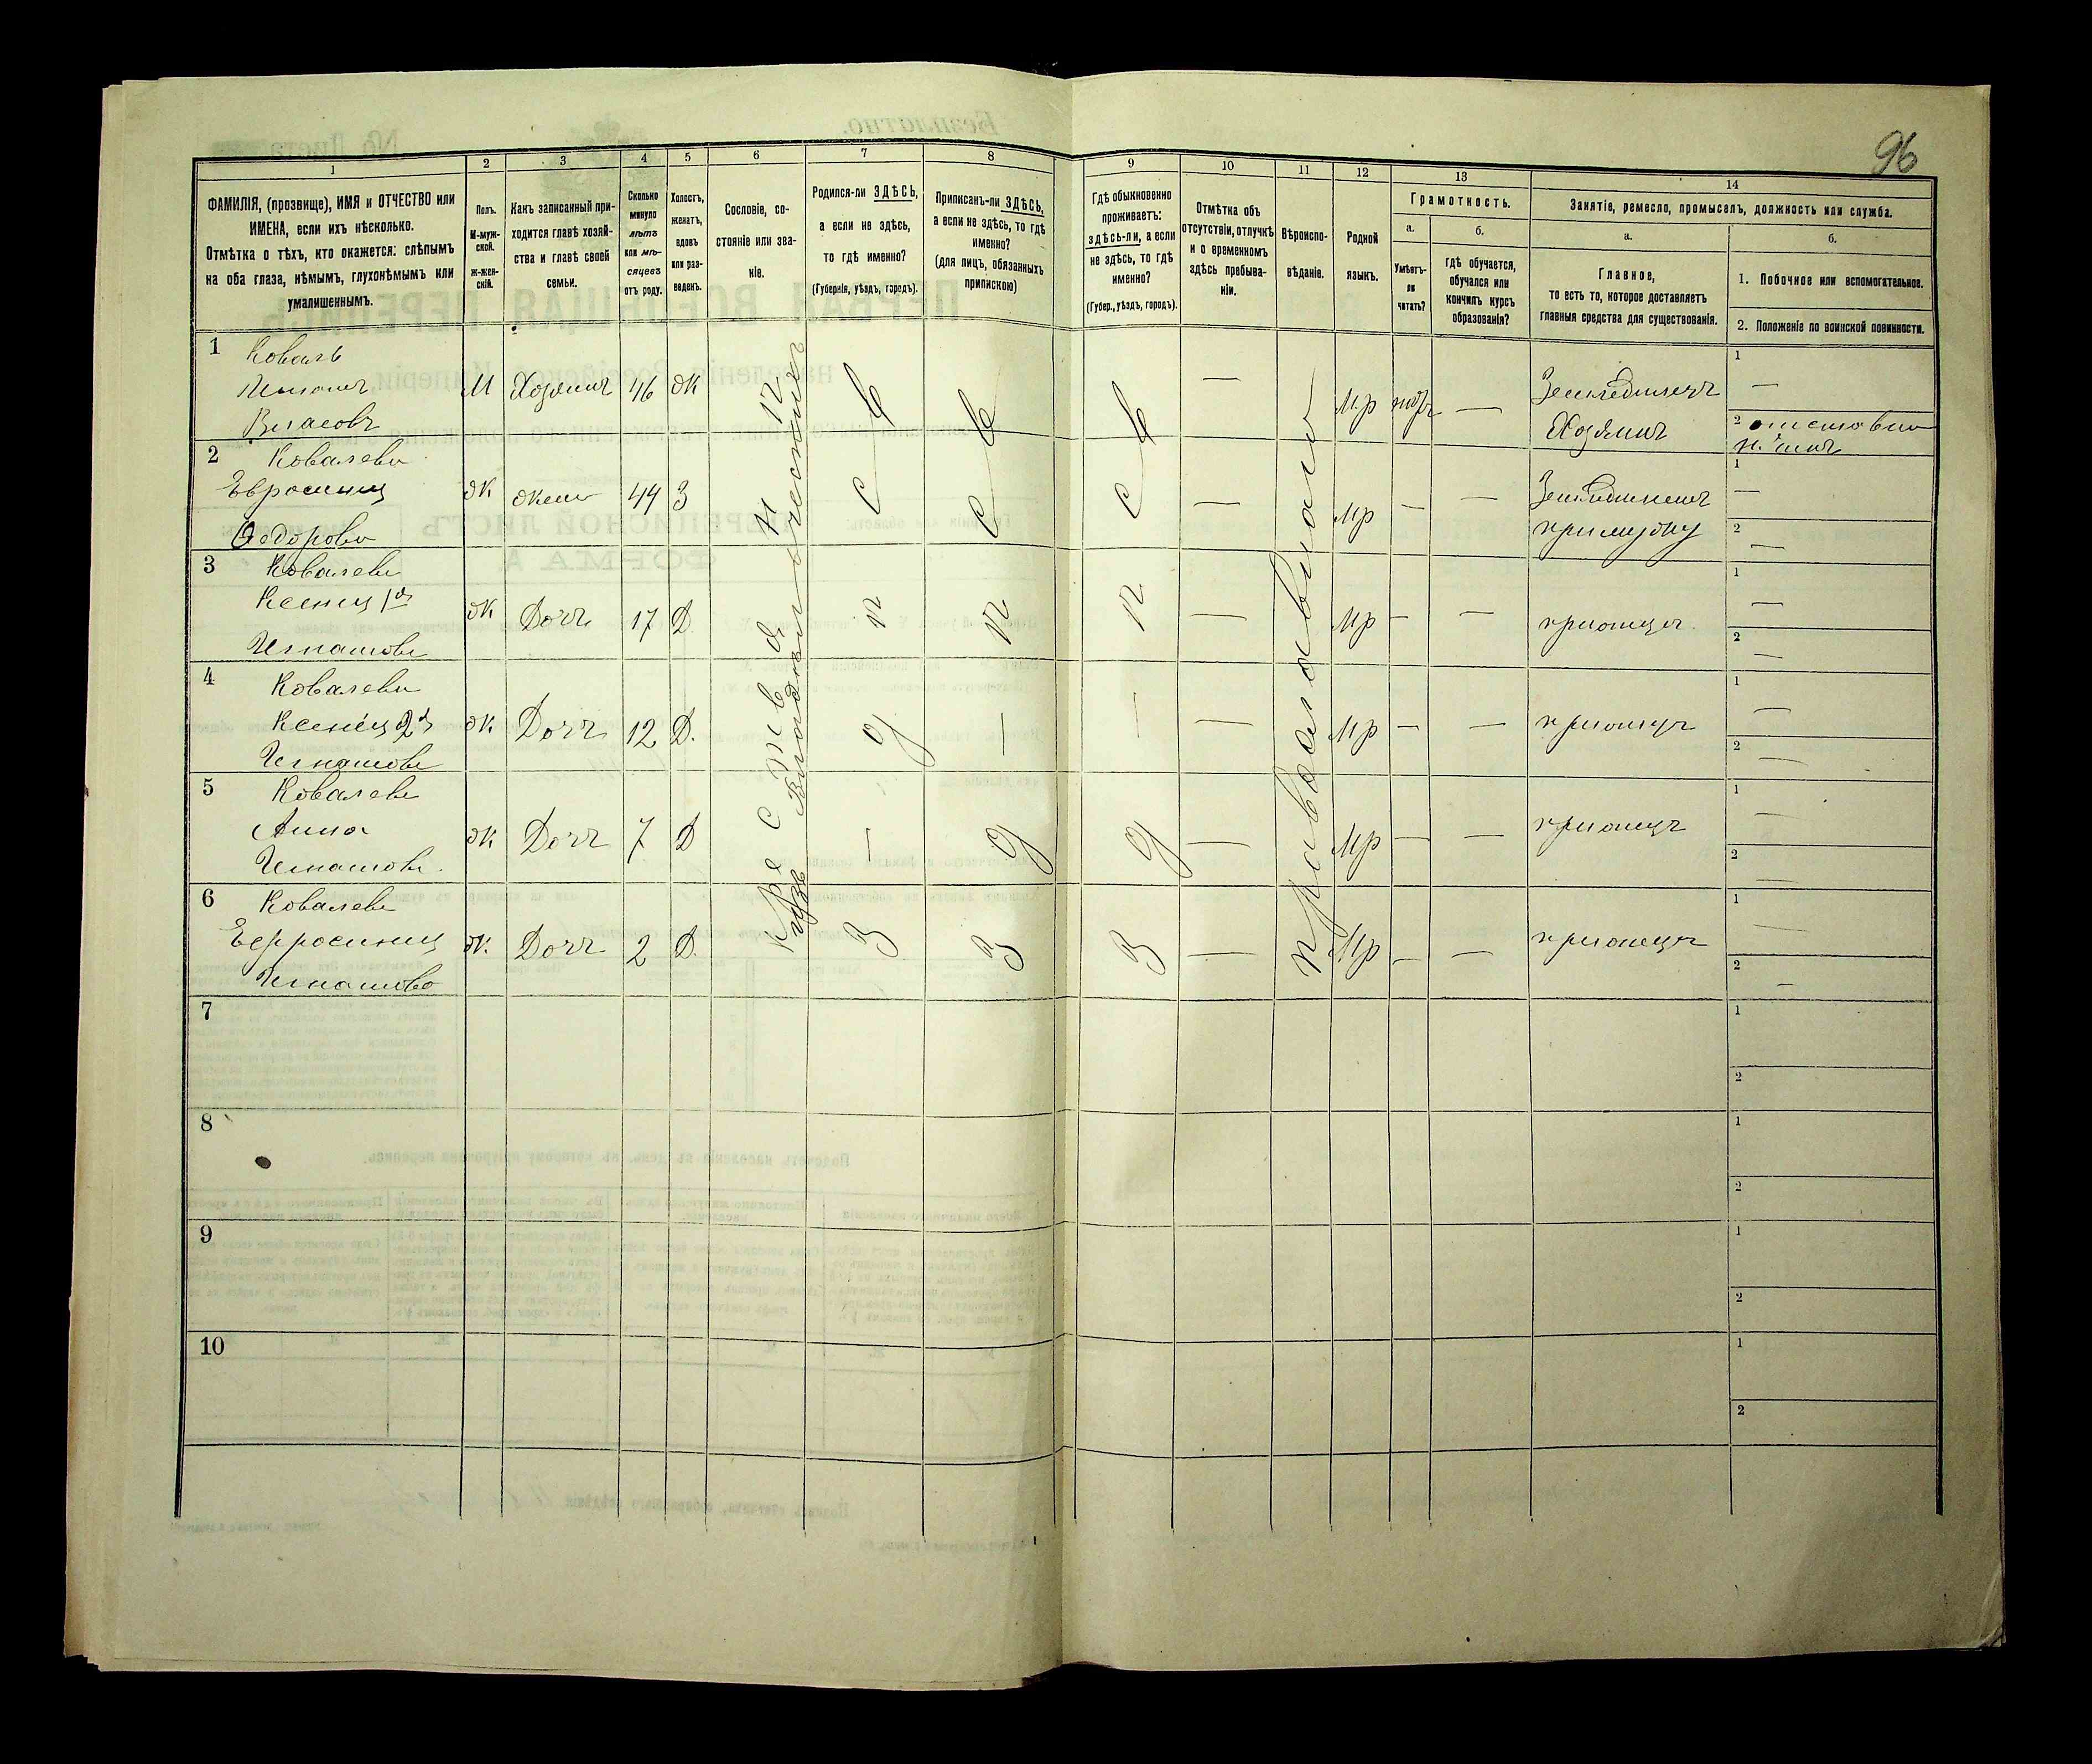 96
1 2 3 4 5 6 7 8 9 10 11 12 13 14
ФАМИЛІЯ, (прозвище), ИМЯ и ОТЧЕСТВО или
ИМЕНА, если ихъ нѣсколько.
Отмѣтка о тѣхъ, кто окажется: слѣпымъ
на оба глаза, нѣмымъ, глухонѣмымъ или
умалишеннымъ.
Полъ.
М-муж-
ской.
Ж-жен-
скій.
Какъ записанный при-
ходится главѣ хозяй-
ства и главѣ своей
семьи.
Сколько
минуло
лѣтъ
или мѣ-
сяцевъ
отъ роду.
Холостъ,
женатъ,
вдовъ
или раз-
веденъ.
Сословіе, со-
стояніе или зва-
ніе.
Родился-ли ЗДѢСЬ,
а если не здѣсь,
то гдѣ именно?
(Губернія, уѣздъ, городъ).
Приписанъ-ли ЗДѢСЬ,
а если не здѣсь, то гдѣ
именно?
(для лицъ, обязанныхъ
припискою)
Гдѣ обыкновенно
проживаетъ:
здѣсь-ли, а если
не здѣсь, то гдѣ
именно?
(Губер., уѣздъ, городъ).
Отмѣтка объ
отсутствіи, отлучкѣ
и о временномъ
здѣсь пребыва-
ніи.
Вѣроиспо-
вѣданіе.
Родной
языкъ.
Грамотность.
а.
Умѣетъ-
ли
читать?
б.
гдѣ обучается,
обучался или
кончилъ курсъ
образованія?
Занятіе, ремесло, промыселъ, должность или служба.
а.
Главное,
то есть то, которое доставляетъ
главныя средства для существованія.
б.
1. Побочное или вспомогательное.
2. Положеніе по воинской повинности.
1 Коваль
Игнатъ
Власовъ
М Хозяинъ 46 Ж — Мр нѣтъ —
Земледѣлецъ
Хозяинъ
1 —
2
2 Ковалева
Евросинія
Федорова
Ж жена 44 З — Мр — —
1 —
2 —
3 Ковалева
Ксенія 1я
Игнатова
Ж Дочь 17 Д. — Мр — — при отцѣ
1 —
2 —
4 Ковалева
Ксенія 2я
Игнатова
Ж Дочь 12 Д. — Мр — — при отцѣ
1 —
2 —
5 Ковалева
Анна
Игнатова
Ж Дочь 7 Д — Мр — — при отцѣ
1 —
2 —
6 Ковалева
Ефросинія
Игнатова
Ж. Дочь 2 Д. — Мр — — при отцѣ
1 —
2 —
изъ Владѣльческихъ
Здѣсь
Здѣсь
Здѣсь
Православнаго
7
1
2
8
1
2
9
1
2
10
1
2